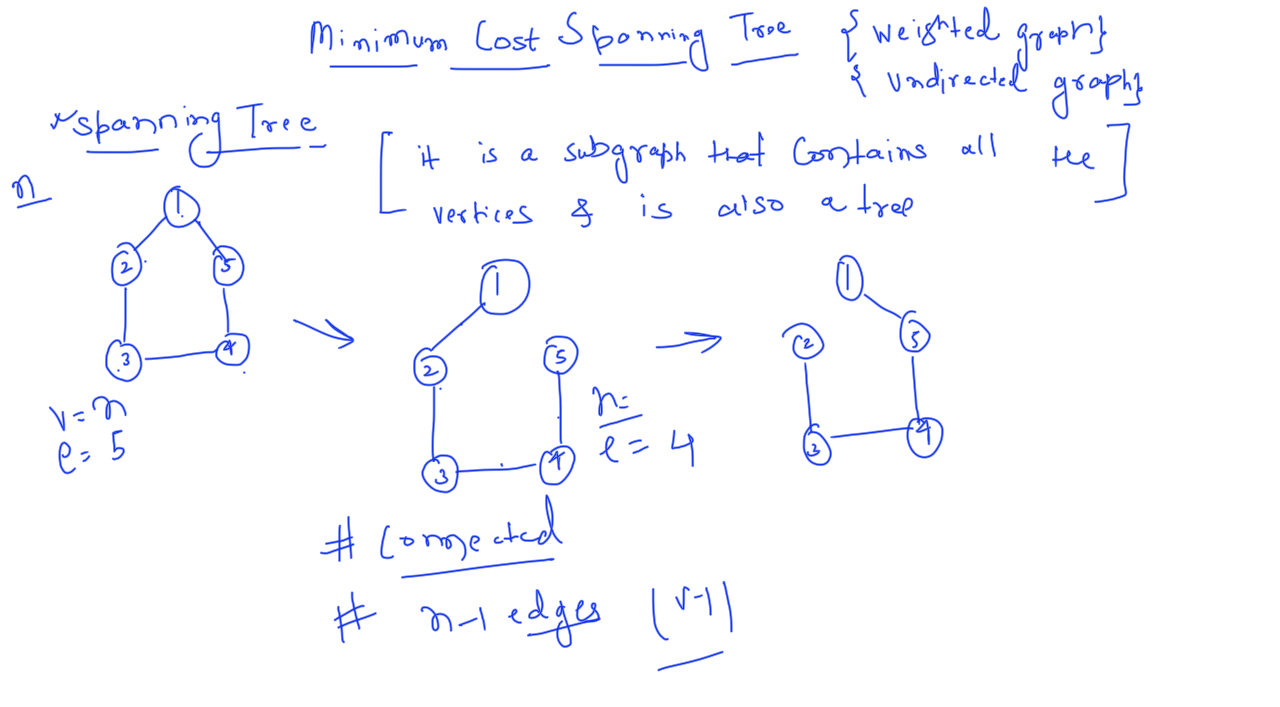 Minimum Cost Spanning Tree { weighted graph}
{ undirected graph}
spanning Tree
[ it is a subgraph that contains all the ]
vertices & is also a tree
n
1
2 5
3 4
v = n
e = 5
1
2 5
3 4
n=
e = 4
1
2 5
3 4
# connected
# n-1 edges (v-1)